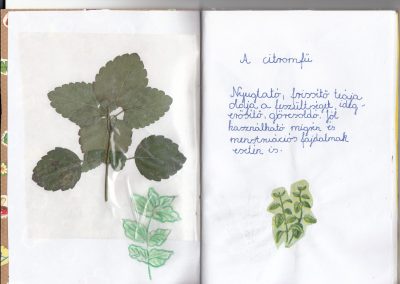 A citromfű
Nyugtató, frissítő teája
oldja a feszültséget, ideg-
erősítő, görcsoldó. Jól
használható migrén és
menstruációs fájdalmak
esetén is.